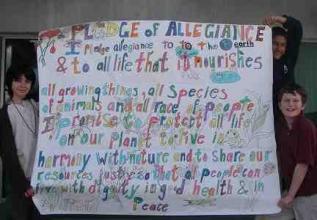 PLEDGE OF ALLEGIANCE
I pledge allegiance to to the earth
& to all life that it nourishes
all growing things, all species
of animals and all race of people
I promise to protect all life
on our planet to live in
harmony with nature and to share our
resources justly so that all people can
live with dignity in good health & in
Peace